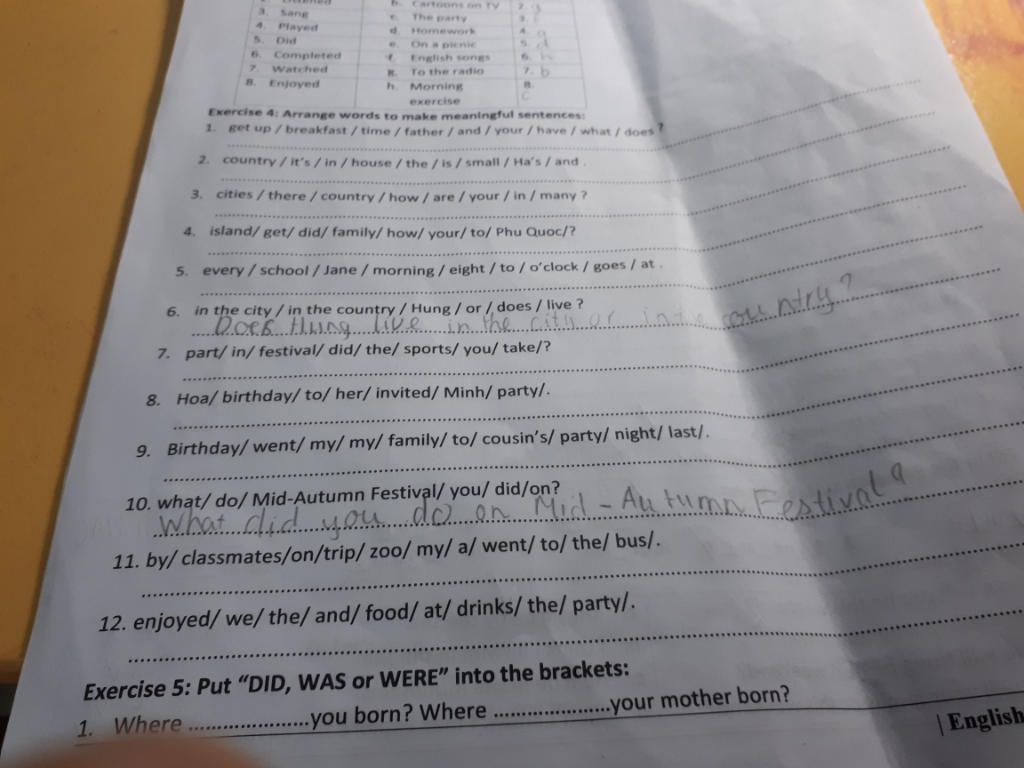 3. Sang c. The party 3.
4. Played d. Homework 4. g
5. Did e. On a picnic 5. d
6. Completed f. English songs 6. h
7. Watched g. To the radio 7. b
8. Enjoyed h. Morning 8.
exercise C
Exercise 4: Arrange words to make meaningful sentences:
1. get up / breakfast / time / father / and / your / have / what / does ?
2. country / it's / in / house / the / is / small / Ha's / and .
3. cities / there / country / how / are / your / in / many ?
4. island/ get/ did/ family/ how/ your/ to/ Phu Quoc/?
5. every / school / Jane / morning / eight / to / o'clock / goes / at .
6. in the city / in the country / Hung / or / does / live ?
Does Hung live in the city or in the country ?
7. part/ in/ festival/ did/ the/ sports/ you/ take/?
8. Hoa/ birthday/ to/ her/ invited/ Minh/ party/.
9. Birthday/ went/ my/ my/ family/ to/ cousin's/ party/ night/ last/.
10. what/ do/ Mid-Autumn Festival/ you/ did/on?
What did you do on Mid - Autumn Festival ?
11. by/ classmates/on/trip/ zoo/ my/ a/ went/ to/ the/ bus/.
12. enjoyed/ we/ the/ and/ food/ at/ drinks/ the/ party/.
Exercise 5: Put "DID, WAS or WERE" into the brackets:
1. Where ......................you born? Where ......................your mother born?
| English